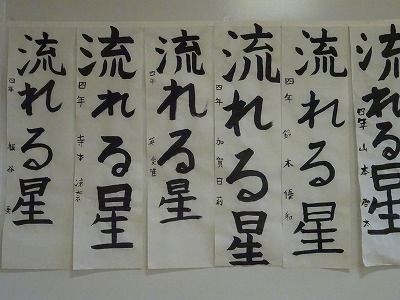 流れる星
四年 山本 啓太
流れる星
四年 鈴木 優和
流れる星
四年 加賀
流れる星
四年
流れる星
四年 寺本
流れる星
四年